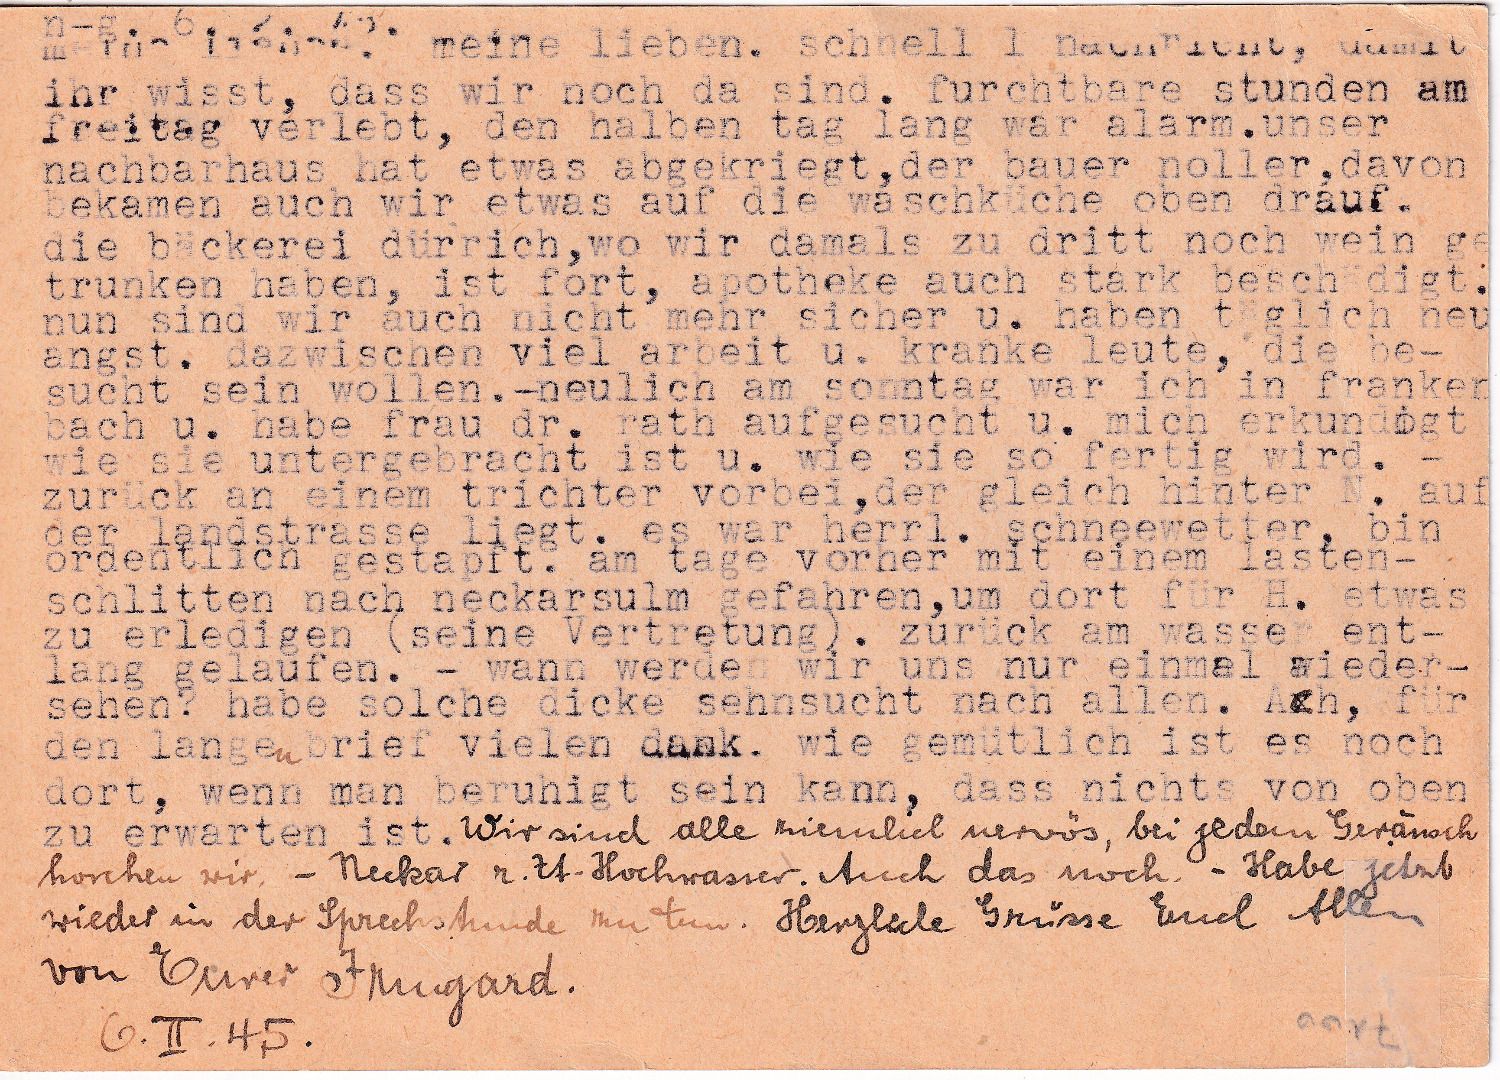 n-g. 6. 2. 45.
meine lieben. schnell 1 nachricht, damit
ihr wisst, dass wir noch da sind. furchtbare stunden am
freitag verlebt, den halben tag lang war alarm.unser
nachbarhaus hat etwas abgekriegt,der bauer noller,davon
bekamen auch wir etwas auf die waschküche oben drauf.
die bäckerei dürrich,wo wir damals zu dritt noch wein ge
trunken haben, ist fort, apotheke auch stark beschädigt.
nun sind wir auch nicht mehr sicher u. haben täglich neu
angst. dazwischen viel arbeit u. kranke leute, die be-
sucht sein wollen.-neulich am sonntag war ich in franken
bach u. habe frau dr. rath aufgesucht u. mich erkundigt
wie sie untergebracht ist u. wie sie so fertig wird. -
zurück an einem trichter vorbei,der gleich hinter N. auf
der landstrasse liegt. es war herrl. schneewetter, bin
ordentlich gestapft. am tage vorher mit einem lasten-
schlitten nach neckarsulm gefahren,um dort für H. etwas
zu erledigen (seine Vertretung). zurück am wasser ent-
lang gelaufen. - wann werden wir uns nur einmal wieder-
sehen? habe solche dicke sehnsucht nach allen. Ach, für
den langen brief vielen dank. wie gemütlich ist es noch
dort, wenn man beruhigt sein kann, dass nichts von oben
zu erwarten ist. Wir sind alle ziemlich nervös, bei jedem Geräusch
horchen wir. - Neckar z. Zt. Hochwasser. Auch das noch. - Habe jetzt
wieder in der Sprechstunde zu tun. Herzliche Grüsse Euch Allen
von Eurer Irmgard.
6. II. 45.